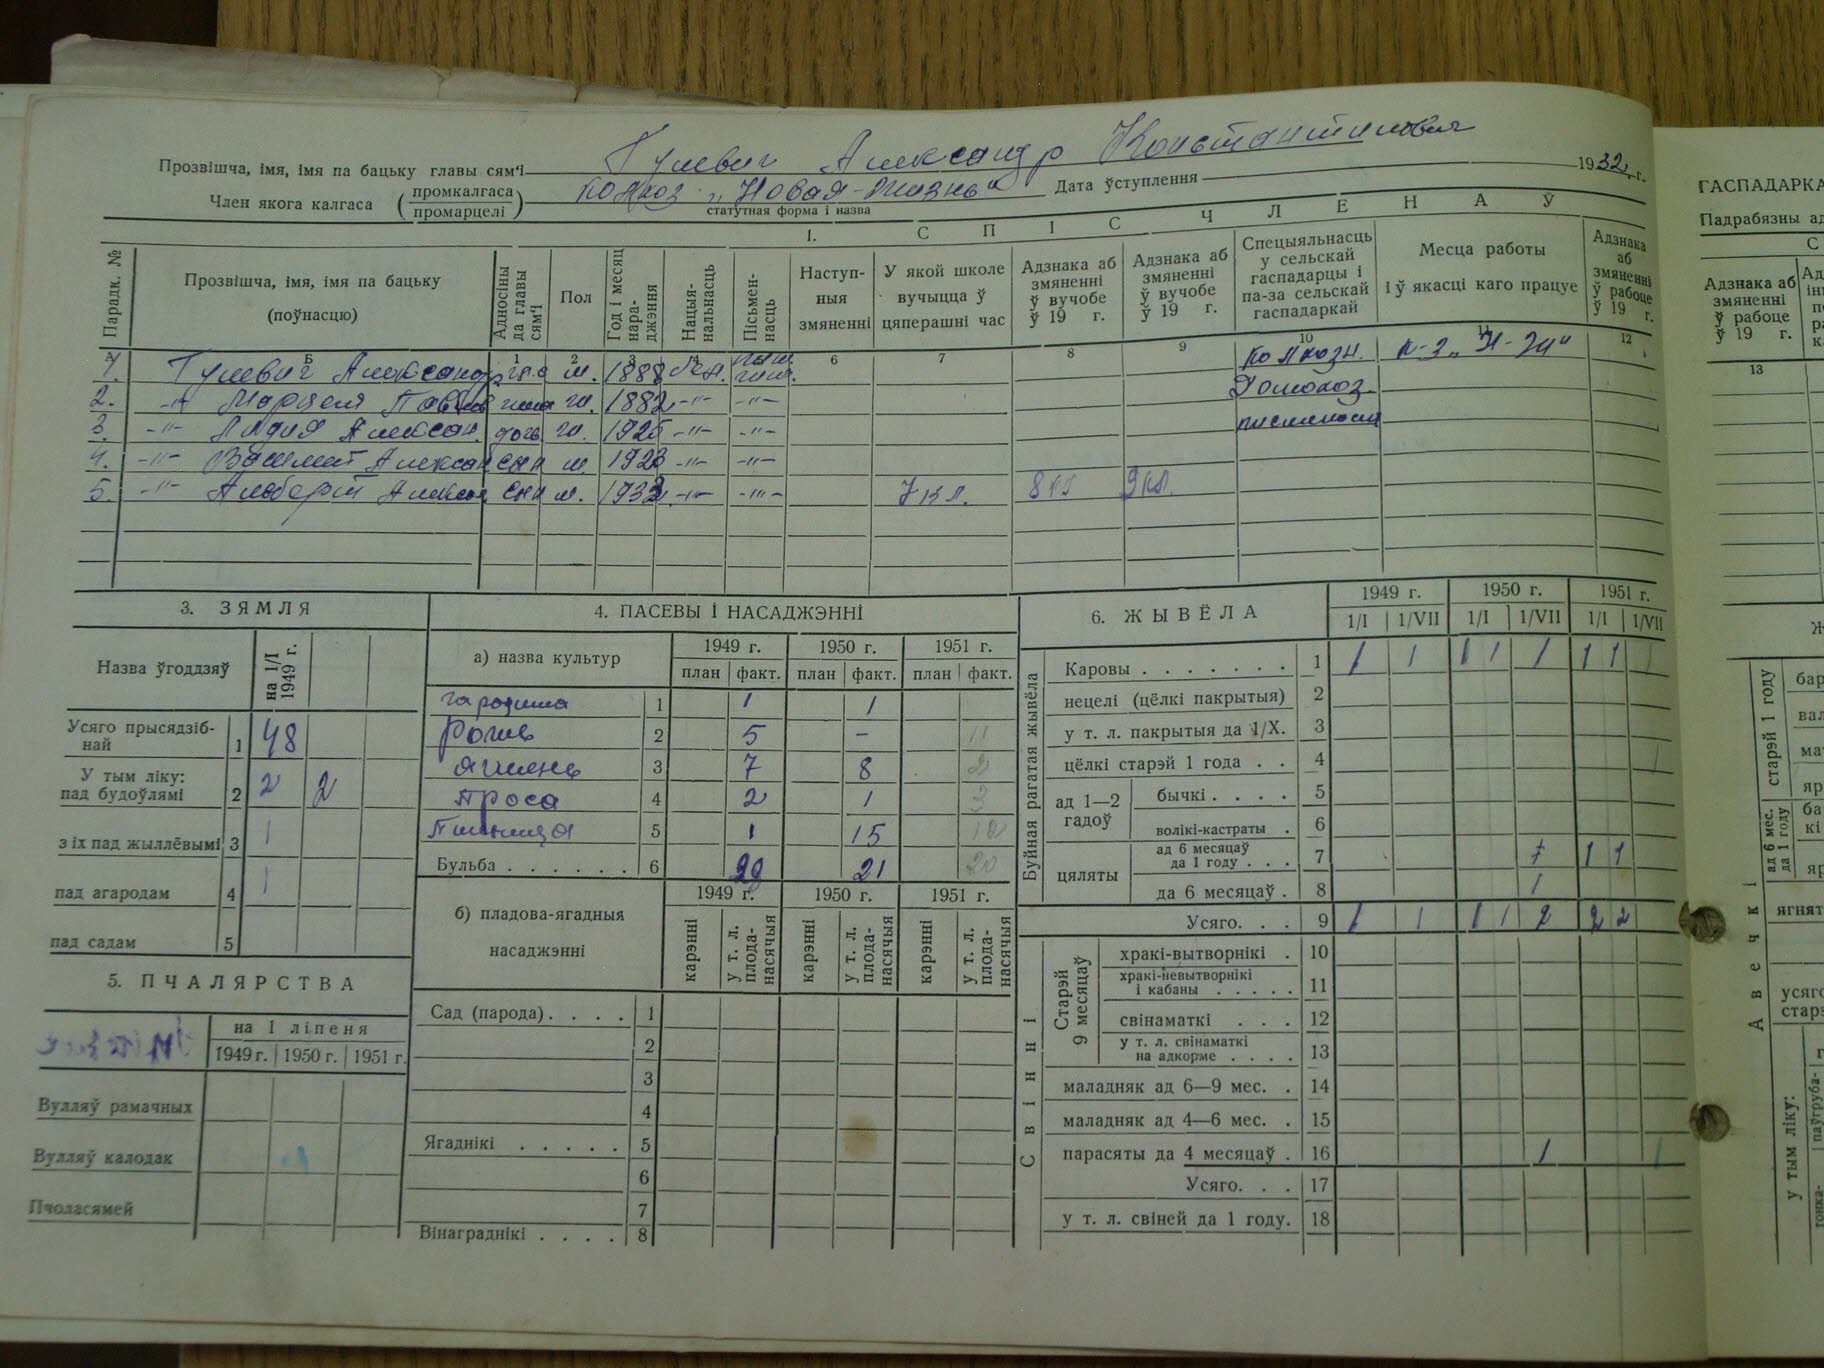 Прозвішча, імя, імя па бацьку главы сям'і Гулевич Александр Константинович
Член якога калгаса (промкалгаса промарцелі) колхоз „Новая-Жизнь" Дата ўступлення 1932 г.
статутная форма і назва
I. СПІС ЧЛЕНАЎ
Парадк. № Прозвішча, імя, імя па бацьку (поўнасцю) Адносіны да главы сям'і Пол Год і месяц нараджэння Нацыянальнасць Пісьменнасць Наступныя змяненні У якой школе вучыцца ў цяперашні час Адзнака аб змяненні ў вучобе ў 19 г. Адзнака аб змяненні ў вучобе ў 19 г. Спецыяльнасць у сельскай гаспадарцы і па-за сельскай гаспадаркай Месца работы і ў якасці каго працуе Адзнака аб змяненні ў рабоце ў 19 г.
А Б 1 2 3 4 5 6 7 8 9 10 11 12
1. Гулевич Александр гл. м. 1888 колхозн. к-з „Н-Ж"
2. -"- жена ж. 1882 -"- -"- Домохоз.
3. -"- Лидия Алексан. дочь ж. 1925 -"- -"-
4. -"- Алексан сын м. 1928 -"- -"-
5. -"- Альберт Алексан сын м. 1932 -"- -"- 7 кл. 8 кл 9 кл.
3. ЗЯМЛЯ
Назва ўгоддзяў на 1/I 1949 г.
Усяго прысядзібнай 1 48
У тым ліку: пад будоўлямі 2 2 2
з іх пад жыллёвымі 3 1
пад агародам 4 1
пад садам 5
5. ПЧАЛЯРСТВА
на 1 ліпеня
1949 г. 1950 г. 1951 г.
Вулляў рамачных
Вулляў калодак 1
Пчоласямей
4. ПАСЕВЫ І НАСАДЖЭННІ
а) назва культур 1949 г. 1950 г. 1951 г.
план факт. план факт. план факт.
гародина 1 1 1
Рожь 2 5 – 11
Ячмень 3 7 8 2
Проса 4 2 1 3
Пшеница 5 1 15 12
Бульба 6 29 21 20
б) пладова-ягадныя насаджэнні 1949 г. 1950 г. 1951 г.
карэнні у т. л. плоданасячыя карэнні у т. л. плоданасячыя карэнні у т. л. плоданасячыя
Сад (парода) 1
2
3
4
Ягаднікі 5
6
7
Вінаграднікі 8
6. ЖЫВЁЛА 1949 г. 1950 г. 1951 г.
1/I 1/VII 1/I 1/VII 1/I 1/VII
Буйная рагатая жывёла
Каровы 1 1 1 1 1 1 1 1 1
нецелі (цёлкі пакрытыя) 2
у т. л. пакрытыя да 1/X. 3
цёлкі старэй 1 года 4 1
ад 1—2 гадоў бычкі 5
волікі-кастраты 6
цяляты ад 6 месяцаў да 1 году 7 1 1
да 6 месяцаў 8 1
Усяго 9 1 1 1 1 2 2 2
Свінні
Старэй 9 месяцаў
хракі-вытворнікі 10
хракі-невытворнікі і кабаны 11
свінаматкі 12
у т. л. свінаматкі на адкорме 13
маладняк ад 6—9 мес. 14
маладняк ад 4—6 мес. 15
парасяты да 4 месяцаў 16 1 1
Усяго 17
у т. л. свіней да 1 году. 18
ГАСПАДАРКА
Падрабязны
Адзнака аб змяненні ў рабоце ў 19 г.
13
Авечкі
старэй 1 году
ад 6 мес. да 1 году
у тым ліку: